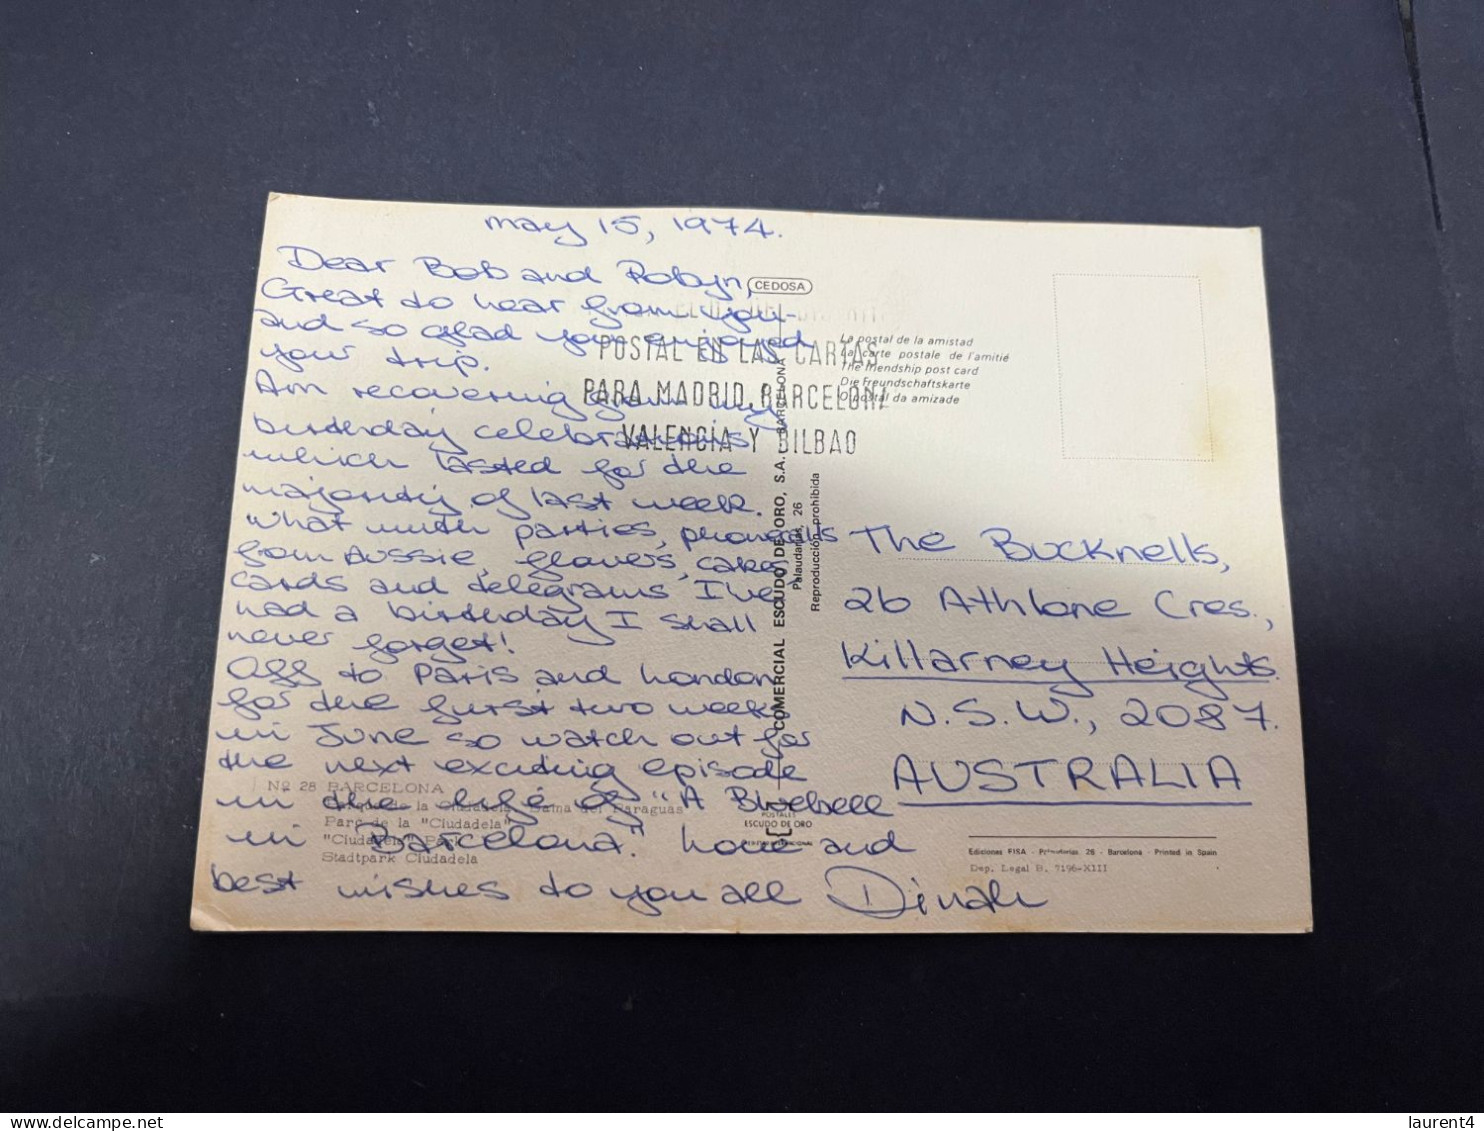 May 15, 1974.
Dear Bob and Robyn,
Great to hear from you -
and so glad you enjoyed
your trip.
Am recovering from my
birthday celebrations
which lasted for the
majority of last week.
What with parties,
from Aussie, flowers, cakes,
cards and telegrams I've
had a birthday I shall
never forget!
Off to Paris and London
for the first two weeks
in June so watch out for
the next exciting episode
in the life of "A Bluebell
in Barcelona." Love and
best wishes to you all Dinah
CEDOSA
POSTAL EN LAS CARTAS
PARA MADRID, BARCELONA
VALENCIA Y BILBAO
La postal de la amistad
La carte postale de l'amitié
The friendship post card
Die freundschaftskarte
O postal da amizade
COMERCIAL ESCUDO DE ORO, S.A. BARCELONA
Palaudarias, 26
Reproducción prohibida
The Bucknells,
26 Athlone Cres.,
Killarney Heights.
N.S.W., 2087.
AUSTRALIA
Nº 28 BARCELONA
Parque de la Ciudadela. Dama del Paraguas
Parc de la "Ciudadela"
"Ciudadela" Park
Stadtpark Ciudadela
POSTALES
ESCUDO DE ORO
Ediciones FISA - Palaudarias, 26 - Barcelona - Printed in Spain
Dep. Legal B. 5196-XIII
laurent4